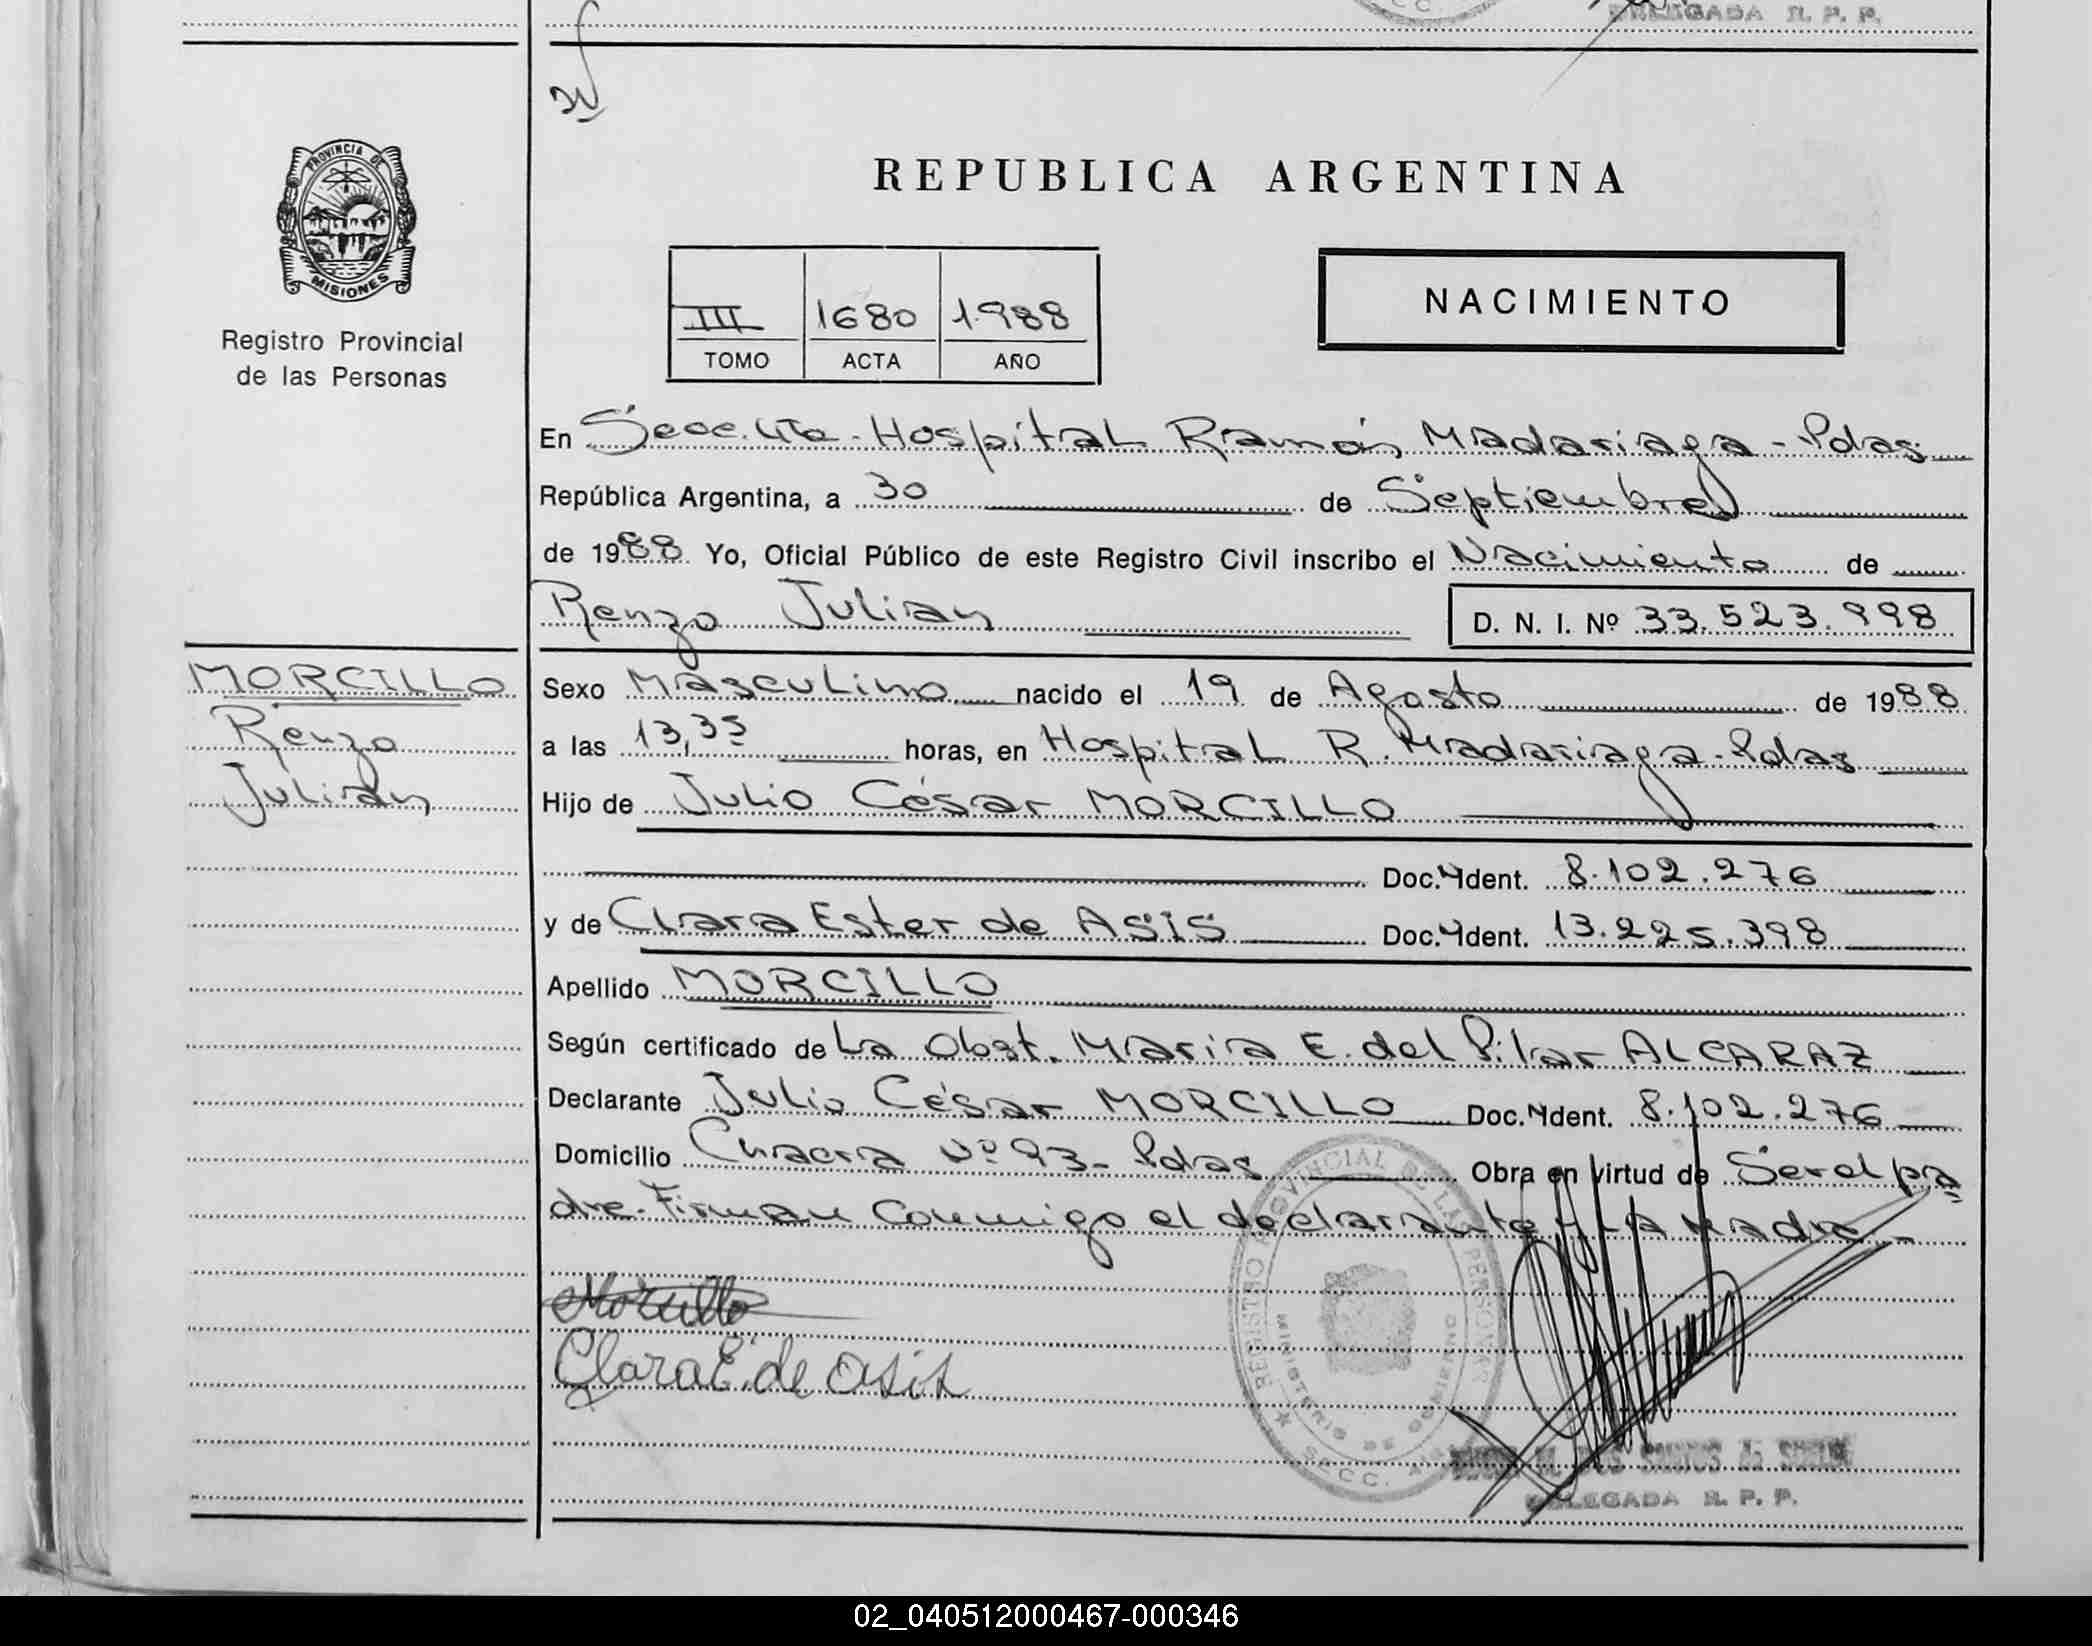 DELEGADA R. P. P.
PROVINCIA DE
MISIONES
Registro Provincial
de las Personas
REPUBLICA ARGENTINA
III 1680 1.988
TOMO ACTA AÑO
NACIMIENTO
En Secc. 4ta - Hospital Ramón Madariaga - Pdas.
República Argentina, a 30 de Septiembre
de 1988 Yo, Oficial Público de este Registro Civil inscribo el Nacimiento de
Renzo Julian D. N. I. Nº 33.523.998
MORCILLO
Renzo
Julián
Sexo Masculino nacido el 19 de Agosto de 1988
a las 13,35 horas, en Hospital R. Madariaga - Pdas
Hijo de Julio César MORCILLO
Doc. Ident. 8.102.276
y de Clara Ester de ASIS Doc. Ident. 13.225.398
Apellido MORCILLO
Según certificado de La Obst. María E. del Pilar ALCARAZ
Declarante Julio César MORCILLO Doc. Ident. 8.102.276
Domicilio Chacra Nº 93 - Pdas Obra en virtud de Ser el pa
dre. Firman Conmigo el declarante y LA Madre -
Morcillo
Clara E. de Asis
REGISTRO PROVINCIAL DE LAS PERSONAS
MINISTERIO DE GOBIERNO
SECC.
DOS SANTOS
DELEGADA R. P. P.
02_040512000467-000346